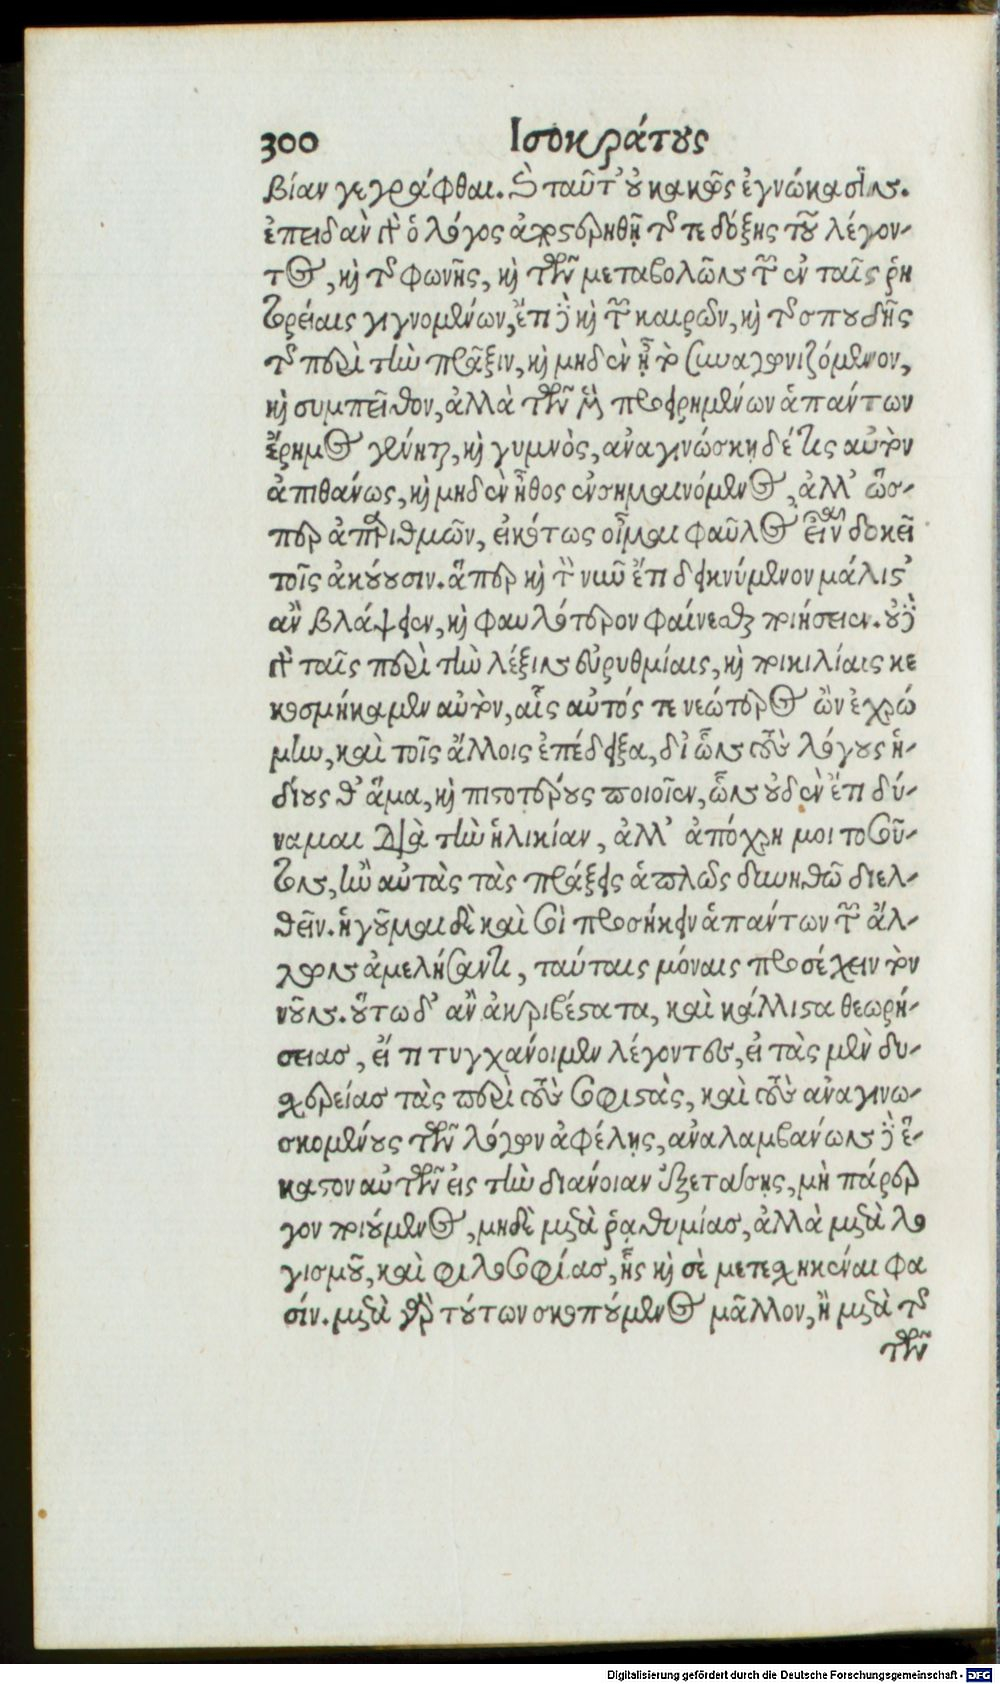 300 Ισοκράτους
βίαν γεγράφθαι. Καὶ ταῦτ' οὐ κακῶς ἐγνώκασιν.
ἐπειδὰν γὰρ ὁ λόγος ἀποστερηθῇ τῆς τε δόξης τοῦ λέγον-
τος, καὶ τῆς φωνῆς, καὶ τῶν μεταβολῶν τῶν ἐν ταῖς ῥη
τορείαις γιγνομένων, ἔτι δὲ καὶ τῶν καιρῶν, καὶ τῆς σπουδῆς
τῆς περὶ τὴν πρᾶξιν, καὶ μηδὲν ᾖ τὸ συναγωνιζόμενον,
καὶ συμπεῖθον, ἀλλὰ τῶν μὲν προειρημένων ἁπάντων
ἔρημος γένηται, καὶ γυμνὸς, ἀναγινώσκῃ δέ τις αὐτὸν
ἀπιθάνως, καὶ μηδὲν ἦθος ἐνσημαινόμενος, ἀλλ' ὥσ-
περ ἀπαριθμῶν, εἰκότως οἶμαι φαῦλος εἶναι δοκεῖ
τοῖς ἀκούουσιν. ἅπερ καὶ τὸν νῦν ἐπιδεικνύμενον μάλιστ'
ἂν βλάψειεν, καὶ φαυλότερον φαίνεσθαι ποιήσειεν. οὐδὲ
γὰρ ταῖς περὶ τὴν λέξιν εὐρυθμίαις, καὶ ποικιλίαις κε
κοσμήκαμεν αὐτὸν, αἷς αὐτός τε νεώτερος ὢν ἐχρώ
μην, καὶ τοῖς ἄλλοις ἐπέδειξα, δι' ὧν τοὺς λόγους ἡ-
δίους θ' ἅμα, καὶ πιστοτέρους ποιοῖεν, ὧν οὐδὲν ἔτι δύ-
ναμαι διὰ τὴν ἡλικίαν, ἀλλ' ἀπόχρη μοι τοσοῦ-
τον, ἢν αὐτὰς τὰς πράξεις ἁπλῶς δυνηθῶ διελ-
θεῖν. ἡγοῦμαι δὲ καὶ σοὶ προσήκειν ἁπάντων τῶν ἄλ-
λων ἀμελήσαντι, ταύταις μόναις προσέχειν τὸν
νοῦν. οὕτω δ' ἂν ἀκριβέστατα, καὶ κάλλιστα θεωρή-
σειας, εἴ τι τυγχάνοιμεν λέγοντες, εἰ τὰς μὲν δυ-
χερείας τὰς περὶ τοὺς σοφιστὰς, καὶ τοὺς ἀναγινω-
σκομένους τῶν λόγων ἀφέλῃς, ἀναλαμβάνων δὲ ἕ-
καστον αὐτῶν εἰς τὴν διάνοιαν ἐξετάσῃς, μὴ πάρερ
γον ποιούμενος, μηδὲ μετὰ ῥᾳθυμίας, ἀλλὰ μετὰ λο
γισμοῦ, καὶ φιλοσοφίας, ἧς καὶ σὲ μετεσχηκέναι φα
σίν. μετὰ γὰρ τούτων σκοπούμενος μᾶλλον, ἢ μετὰ τῆς
τῶν
Digitalisierung gefördert durch die Deutsche Forschungsgemeinschaft - DFG